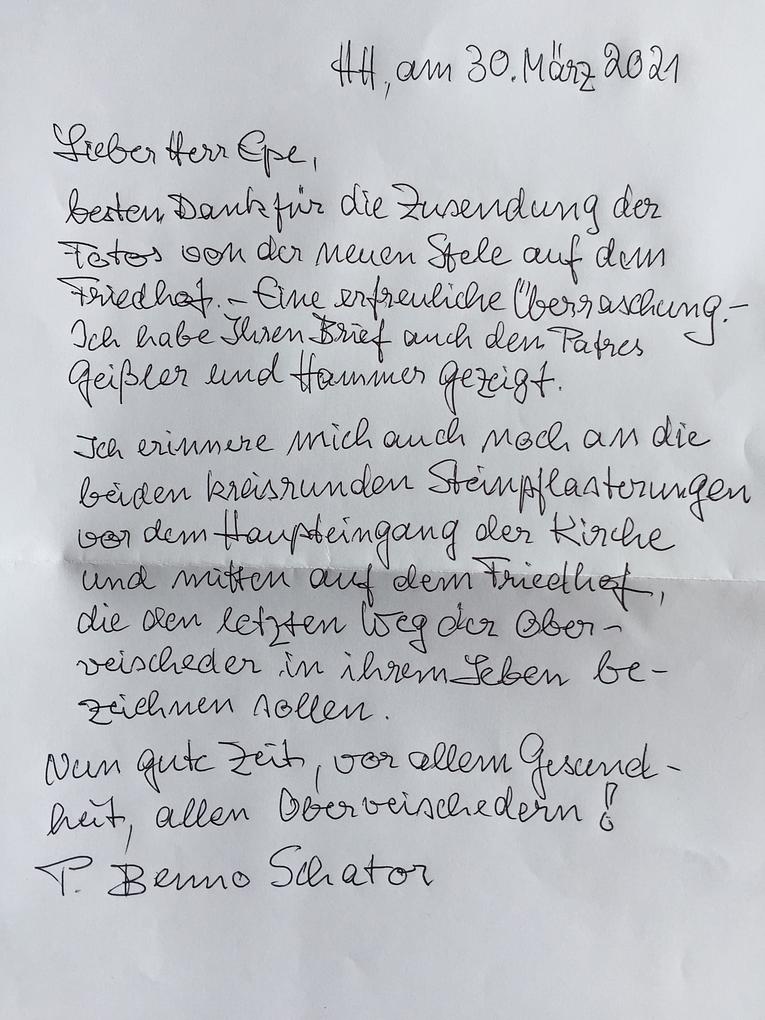 HH, am 30. März 2021
Lieber Herr Epe,
besten Dank für die Zusendung der
Fotos von der neuen Stele auf dem
Friedhof. – Eine erfreuliche Überraschung. –
Ich habe Ihren Brief auch den Patres
Geißler und Hammer gezeigt.
Ich erinnere mich auch noch an die
beiden kreisrunden Steinpflasterungen
vor dem Haupteingang der Kirche
und mitten auf dem Friedhof,
die den letzten Weg der Ober-
veischeder in ihrem Leben be-
zeichnen sollen.
Nun gute Zeit, vor allem Gesund-
heit, allen Oberveischedern!
P. Benno Schator